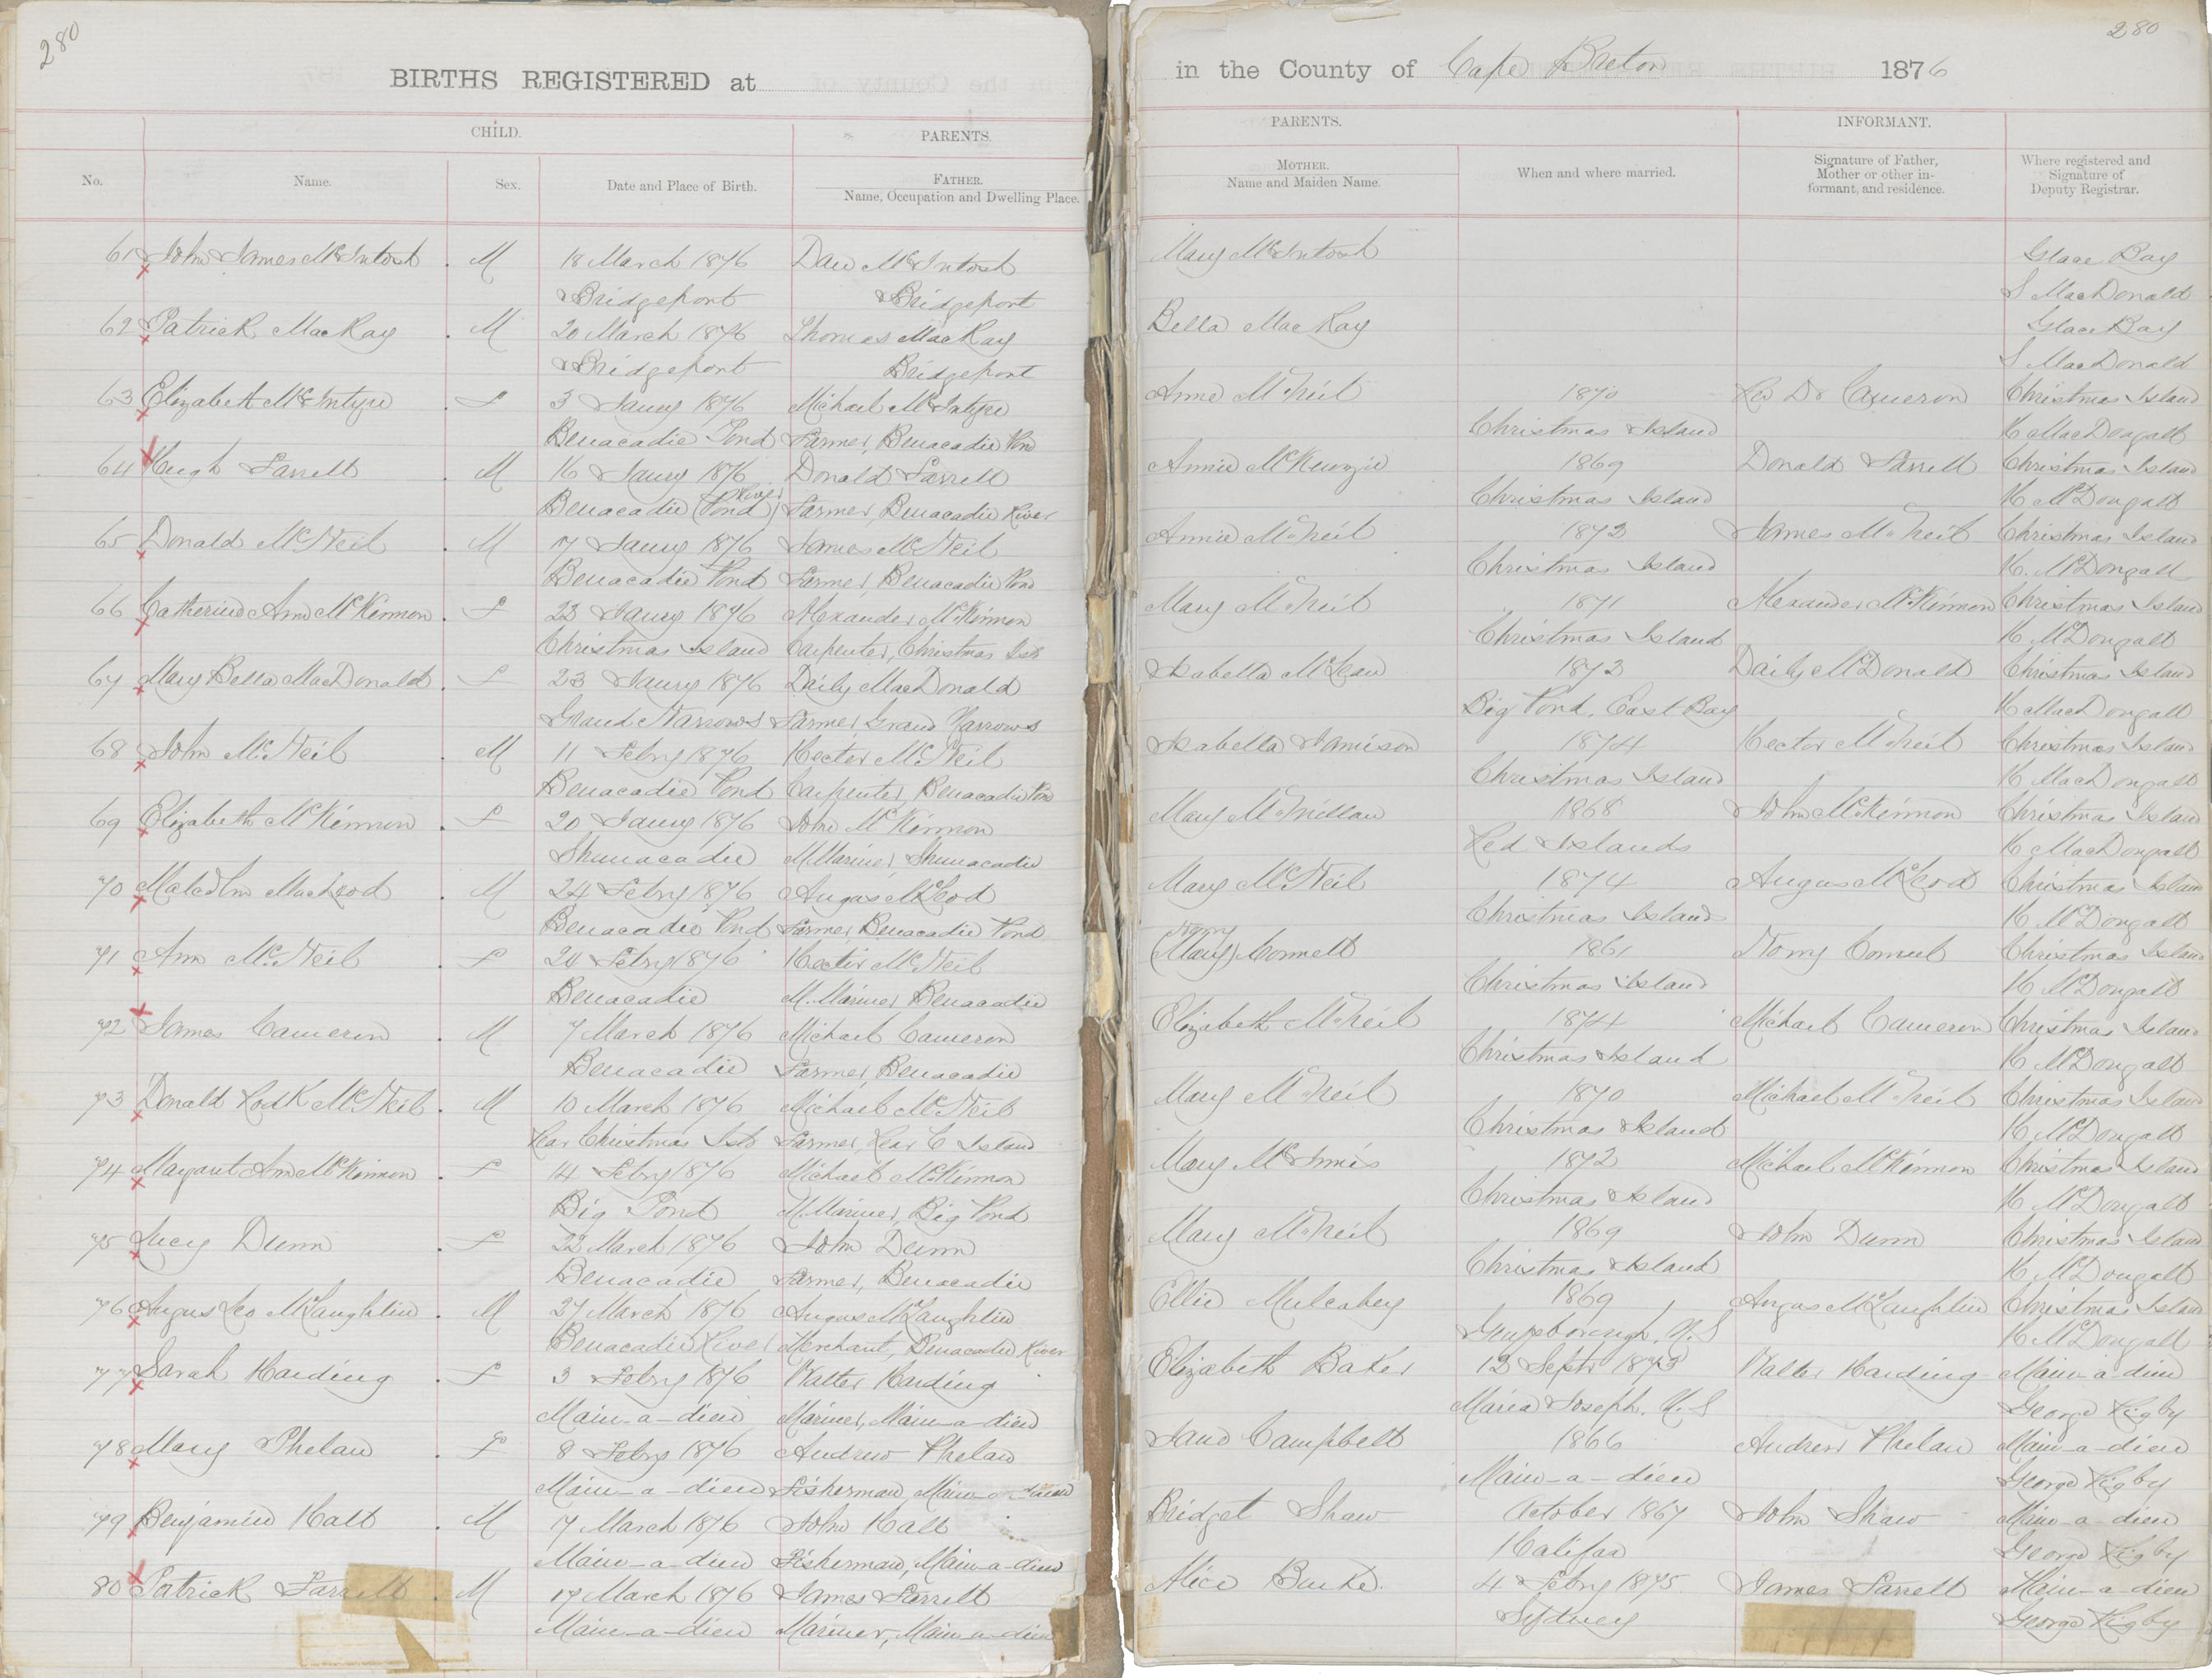 280
BIRTHS REGISTERED at
CHILD.
PARENTS.
No.
Name.
Sex.
Date and Place of Birth.
FATHER.
Name, Occupation and Dwelling Place.
61 John James McIntosh . M 18 March 1876 Dan McIntosh
Bridgeport Bridgeport
62 Patrick MacKay . M 20 March 1876 Thomas MacKay
Bridgeport Bridgeport
63 Elizabeth McIntyre . F 3 Jany 1876 Michael McIntyre
Benacadie Pond Farmer, Benacadie Pond
64 Hugh Farrell . M 16 Jany 1876 Donald Farrell
Benacadie (Pond) River Farmer, Benacadie River
65 Donald McNeil . M 17 Jany 1876 James McNeil
Benacadie Pond Farmer, Benacadie Pond
66 Catherine Ann McKinnon . F 22 Jany 1876 Alexander McKinnon
Christmas Island Carpenter, Christmas Isld
67 Mary Bella MacDonald . F 23 Jany 1876 Daily MacDonald
Grand Narrows Farmer, Grand Narrows
68 John McNeil . M 11 Febry 1876 Hector McNeil
Benacadie Pond Carpenter, Benacadie Pond
69 Elizabeth McKinnon . F 20 Jany 1876 John McKinnon
Shunacadie M. Mariner, Shunacadie
70 Malcolm MacLeod . M 24 Febry 1876 Angus McLeod
Benacadie Pond Farmer, Benacadie Pond
71 Ann McNeil . F 20 Febry 1876 Hector McNeil
Benacadie M. Mariner, Benacadie
72 James Cameron . M 7 March 1876 Michael Cameron
Benacadie Farmer, Benacadie
73 Donald Rodk McNeil . M 10 March 1876 Michael McNeil
Rear Christmas Isld Farmer, Rear C Island
74 Margaret Ann McKinnon . F 14 Febry 1876 Michael McKinnon
Big Pond M. Mariner, Big Pond
75 Lucy Dunn . F 22 March 1876 John Dunn
Benacadie Farmer, Benacadie
76 Angus Leo McLaughlin . M 27 March 1876 Angus McLaughlin
Benacadie River Merchant, Benacadie River
77 Sarah Harding . F 3 Febry 1876 Walter Harding
Main-a-dieu Mariner, Main-a-dieu
78 Mary Phelan . F 8 Febry 1876 Andrew Phelan
Main-a-dieu Fisherman, Main-a-dieu
79 Benjamin Hall . M 17 March 1876 John Hall
Main-a-dieu Fisherman, Main-a-dieu
80 Patrick Farrell . M 17 March 1876 James Farrell
Main-a-dieu Mariner, Main-a-dieu
280
in the County of Cape Breton 1876
PARENTS.
INFORMANT.
MOTHER.
Name and Maiden Name.
When and where married.
Signature of Father,
Mother or other in-
formant, and residence.
Where registered and
Signature of
Deputy Registrar.
Mary McIntosh Glace Bay
S MacDonald
Bella MacKay Glace Bay
S MacDonald
Anne McNeil 1870 Rev Dr Cameron Christmas Island
Christmas Island H MacDougall
Annie McKenzie 1869 Donald Farrell Christmas Island
Christmas Island H McDougall
Annie McNeil 1872 James McNeil Christmas Island
Christmas Island H. McDougall
Mary McNeil 1871 Alexander McKinnon Christmas Island
Christmas Island H McDougall
Isabella McLean 1873 Daily McDonald Christmas Island
Big Pond, East Bay H MacDougall
Isabella Jamison 1874 Hector McNeil Christmas Island
Christmas Island H MacDougall
Mary McMillan 1868 John McKinnon Christmas Island
Red Islands H MacDougall
Mary McNeil 1874 Angus McLeod Christmas Island
Christmas Islands H McDougall
(Mary) Connell 1861 Connell Christmas Island
Christmas Island H McDougall
Elizabeth McNeil 1874 Michael Cameron Christmas Island
Christmas Island H McDougall
Mary McNeil 1870 Michael McNeil Christmas Island
Christmas Island H McDougall
Mary McInnis 1872 Michael McKinnon Christmas Island
Christmas Island H McDougall
Mary McNeil 1869 John Dunn Christmas Island
Christmas Island H McDougall
Ellie Mulcahey 1869 Angus McLaughlin Christmas Island
Guysborough, N.S H McDougall
Elizabeth Baker 12 Septr 1873 Walter Harding Main-a-dieu
Maria Joseph, N.S George Rigby
Jane Campbell 1866 Andrew Phelan Main-a-dieu
Main-a-dieu George Rigby
Bridget Shaw October 1867 John Shaw Main-a-dieu
Halifax George Rigby
Alice Burke. 4 Febry 1875 James Farrell Main-a-dieu
Sydney George Rigby